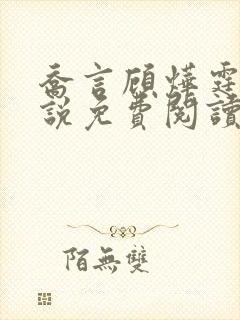 喬言顧燁霆
說免費閱讀
陌無雙